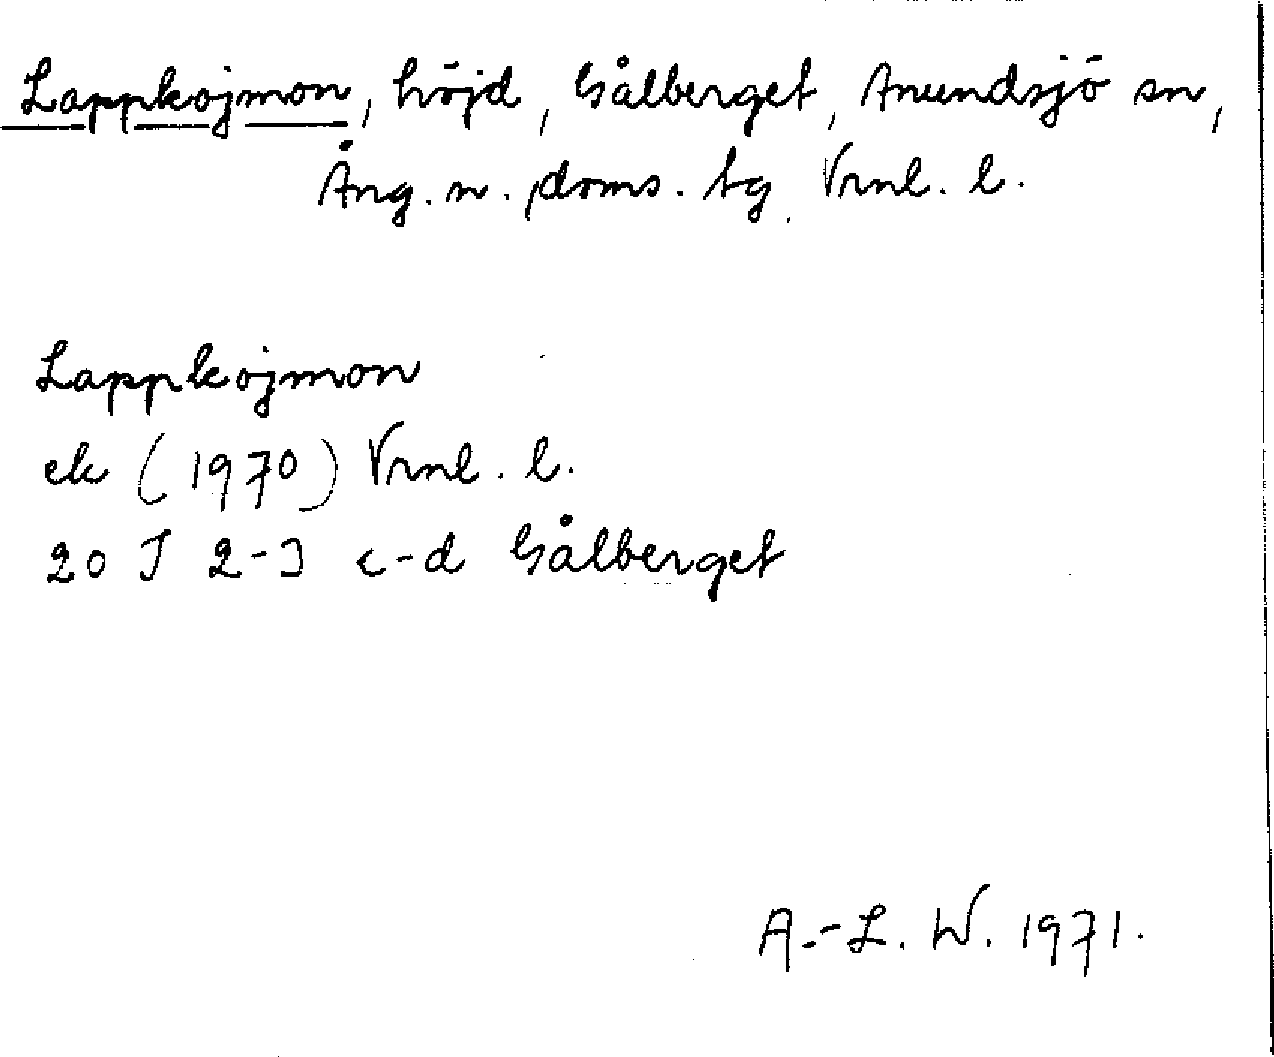 Lappkojmon, höjd, Gålberget, Anundsjö sn,
Ång. n. doms. tg. Vrnl. l.
Lappkojmon
ek (1970) Vrnl. l.
20 J 2-3 c-d Gålberget
A.-L. W. 1971.